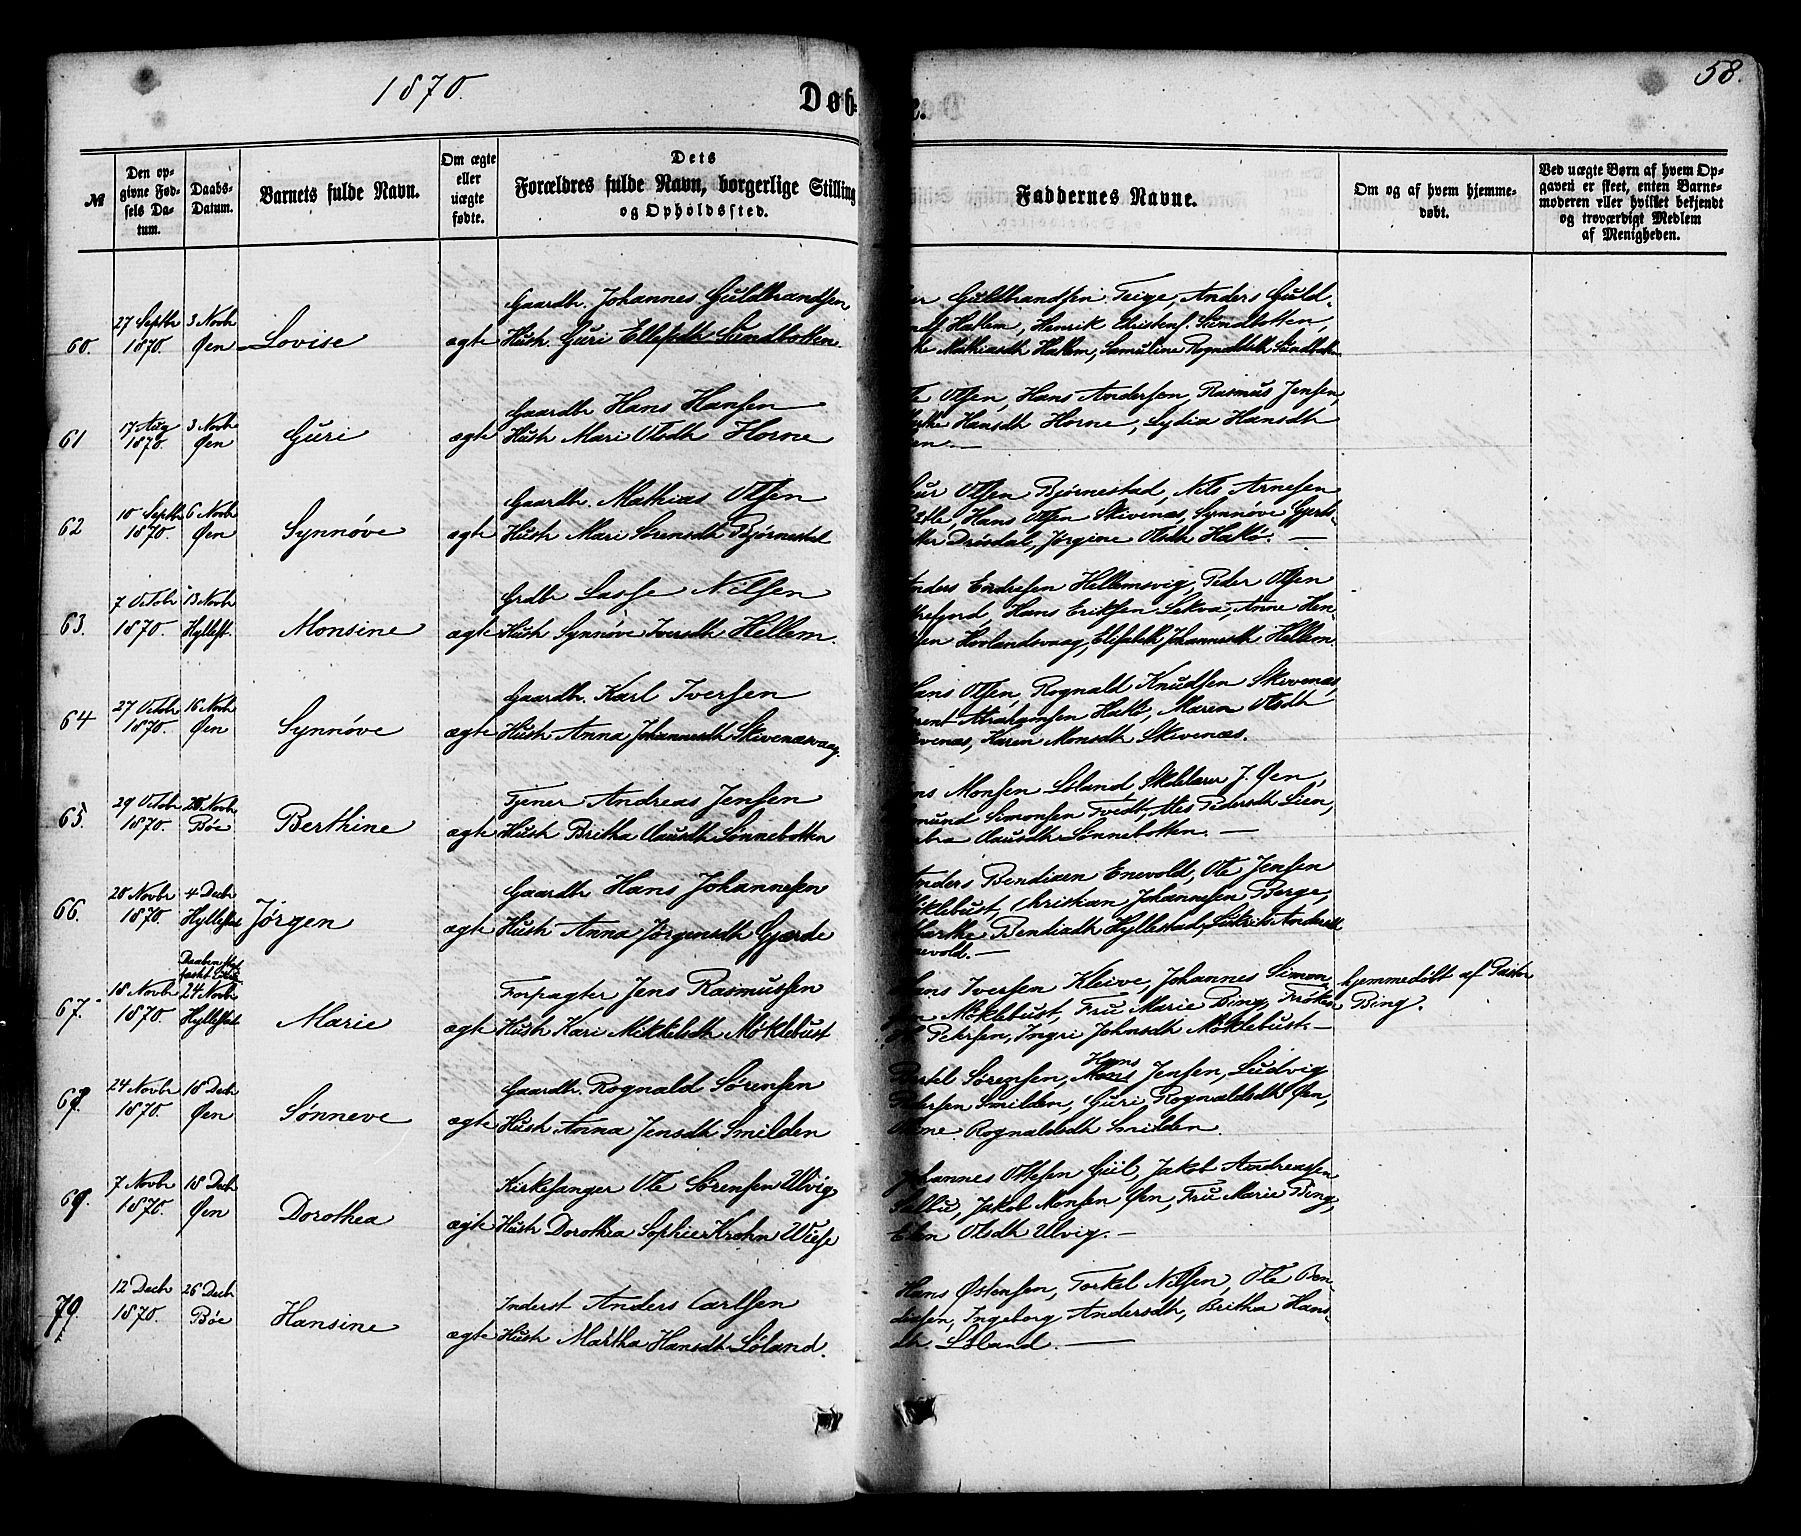 1870.
Døb
e.
58.
№
Den op-
givne Fød-
sels Da-
tum.
Daabs-
Datum.
Barnets fulde Navn.
Om ægte
eller
uægte
fødte.
Dets
Forældres fulde Navn, borgerlige Stilling
og Opholdssted.
Faddernes Navne.
Om og af hvem hjemme-
døbt.
Ved uægte Børn af hvem Op-
gaven er skeet, enten Barne-
moderen eller hvilket bekjendt
og troværdigt Medlem
af Menigheden.
60.
27 Septbr
1870.
3 Novbr
Øen
Lovise
ægte
Gaardbr. Johannes Guldbrandsen
Hust. Guri Ellefsdtr Sundbotten.
Guldbrandsen Teige, Anders Guld-
Hatlem, Henrik Christens. Sundbotten,
Mathiasdtr Hatlem, Samuline Rognaldsdtr Sundbotten
61
17 Aug
1870.
3 Novbr
Øen
Guri
ægte
Gaardbr Hans Hansen
Hust Mari Olsdtr Horne
Olsen, Hans Andersen, Rasmus Jensen,
Hansdtr Horne, Lydia Hansdtr
en.
62
10 Septbr
1870.
6 Novbr
Øen
Synnøve
ægte
Gaardbr. Mathias Olsen
Hust Mari Sørensdtr Bjørnestad
Olsen Bjørnestad, Nils Arnesen
Hans Olsen Skivenæs, Synnøve Gjerts-
Drøsdal, Jørgine Olsdtr Haklø.
63.
7 Octobr
1870.
13 Novbr
Hyllest.
Monsine
ægte
Grdbr Lasse Nilsen
Hust Synnøve Iversdtr Hellem.
Anders Endresen Hellemsvig, Peder Olsen
Hans Eriksen Lekva, Anne Hen-
Hovlandsvaag, Elisabeth Johannesdtr Hellem.
64
27 Octobr
1870.
16 Novbr
Øen
Synnøve
ægte
Gaardbr. Karl Iversen
Hust Anna Johannesdtr Skivenæsvaag
Hans Olsen, Rognald Knudsen Skivenæs,
Abrahamsen Haklø, Maren Olsdtr
Skivenæs, Karen Monsdtr Skivenæs.
65.
29 Octobr
1870.
20 Novbr
Bøe
Berthine
ægte
Tjener Andreas Jensen
Hust Britha Clausdtr Sønnebotten
Monsen Løland, Skolelærer J. Øen,
Simonsen Tvedt, Pedersdtr Lien,
Clausdtr Sønnebotten.
66.
20 Novbr
1870.
4 Decbr
Hyllestad
Jørgen
ægte
Gaardbr Hans Johannesen
Hust Anna Jørgensdtr Gjerde
Anders Bendixen Enevold, Ole Jensen
Møklebust, Christian Johannesen Berge,
Marthe Bendixdtr Hyllestad, Andersdtr
Enevold.
67.
18 Novbr
1870.
24 Novbr
Hyllestad
Marie
ægte
Forpagter Jens Rasmussen
Hust Kari Mikkelsdtr Møklebust
Hans Iversen Kleive, Johannes Simon-
sen Møklebust, Fru Marie Bing, Frøken
Petersen, Ingri Johnsdtr Møklebust.
hjemmedøbt af Pastor
Bing.
68.
24 Novbr
1870.
18 Decbr
Øen
Sønneve
ægte
Gaardbr. Rognald Sørensen
Hust Anna Jensdtr Smilden
Bertel Sørensen, Hans Jensen, Ludvig
Pedersen Smilden, Guri Rognaldsdtr Øen,
Rognaldsdtr Smilden.
69.
7 Novbr
1870.
18 Decbr
Øen
Dorothea
ægte
Kirkesanger Ole Sørensen Ulvig
Hust Dorothea Sophie Krohn Wiese
Johannes Ottesen Giil, Jakob Andreassen
Salbu, Jakob Monsen Øen, Fru Marie Bing,
Elen Olsdtr Ulvig.
70.
12 Decbr
1870.
26 Decbr
Bøe
Hansine
ægte
Inderst Anders Carlsen
Hust Martha Hansdtr Løland.
Hans Østensen, Torkel Nilsen, Ole Ben-
dixsen, Ingeborg Andersdtr, Britha Hans-
dtr. Løland.